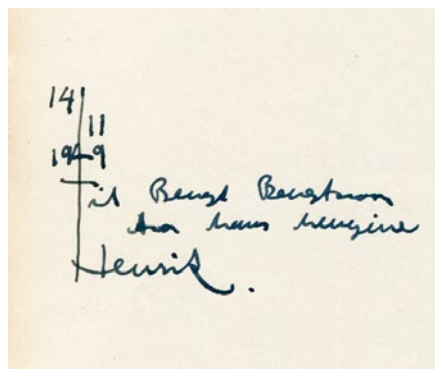 14
11
1949
Til Bengt Bengtsson
fra hans hengivne
Henrik.